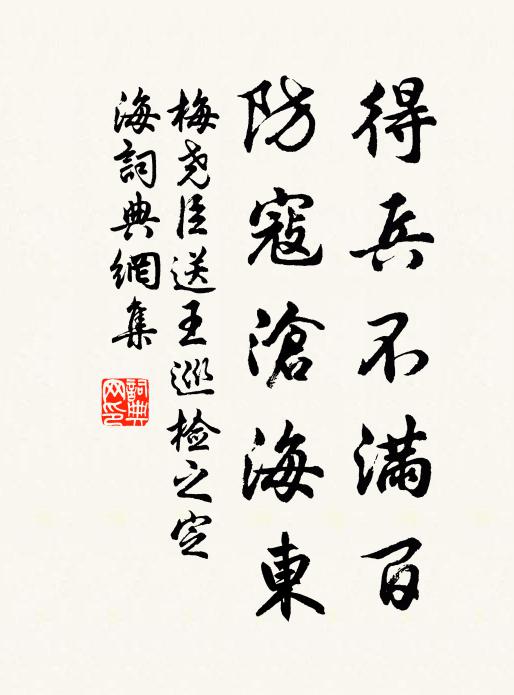 得兵不滿百
防寇滄海東
梅尧臣送王巡检之定
海詞典網集
詞典
网印